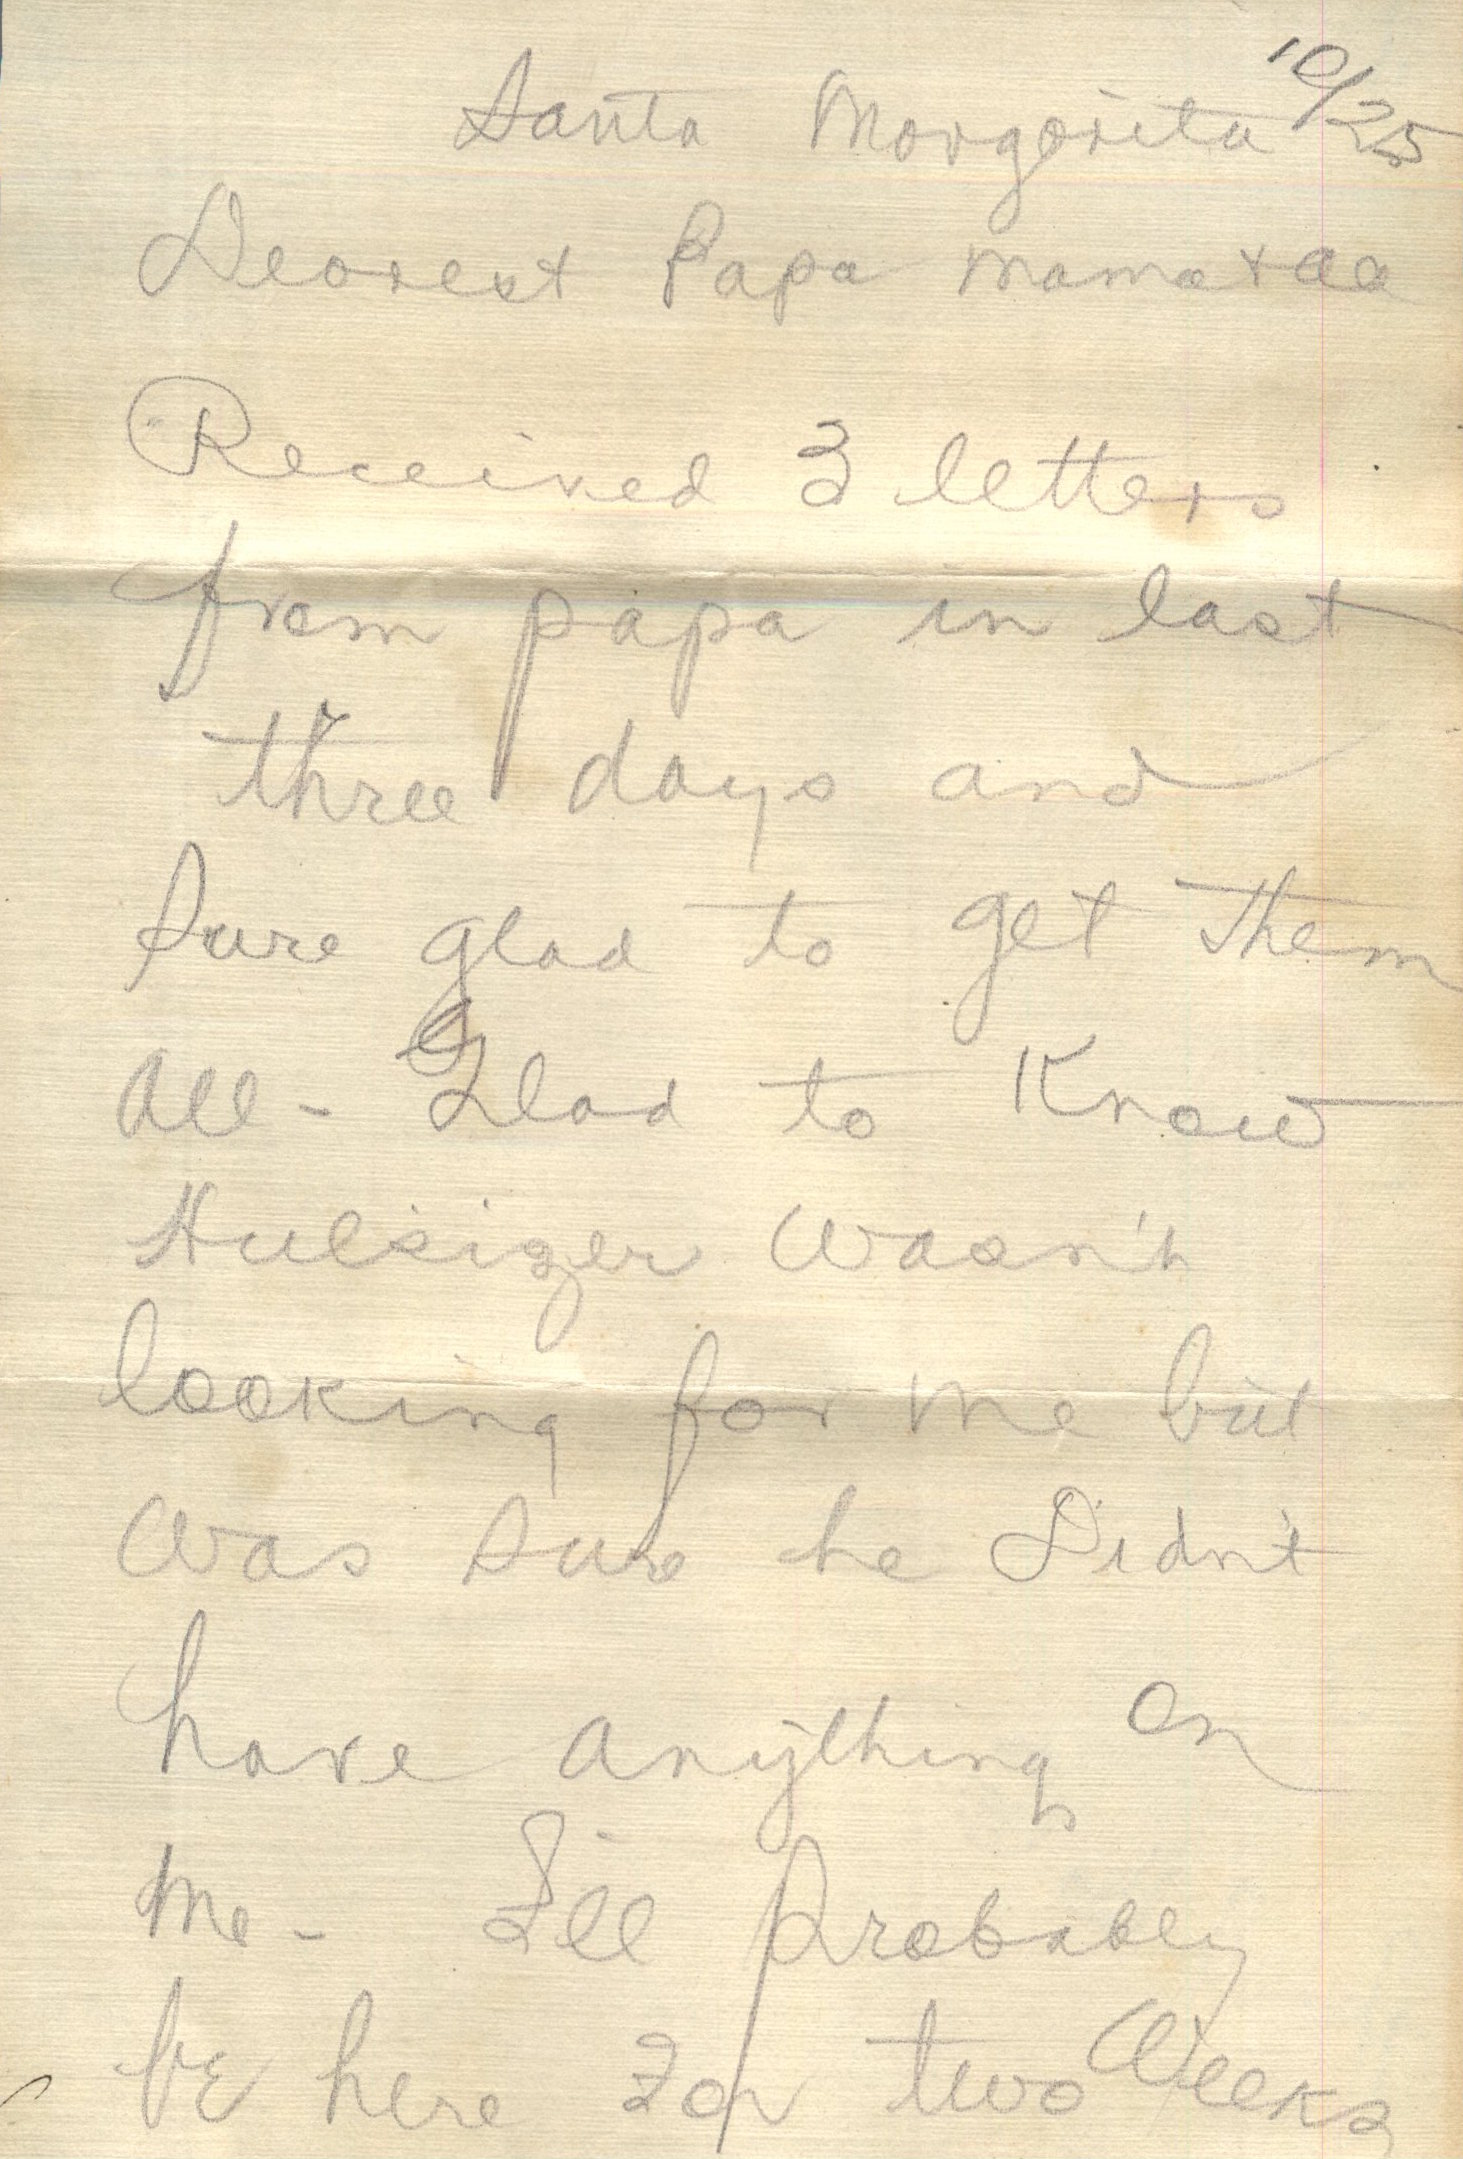 Santa Margarita 10/25
Dearest Papa Mama + aa
Received 3 letters
from papa in last
three days and
sure glad to get them
all - Glad to Know
Hulsizer wasn't
looking for me but
was sure he Didn't
have anything on
me - I'll probably
be here for two weeks